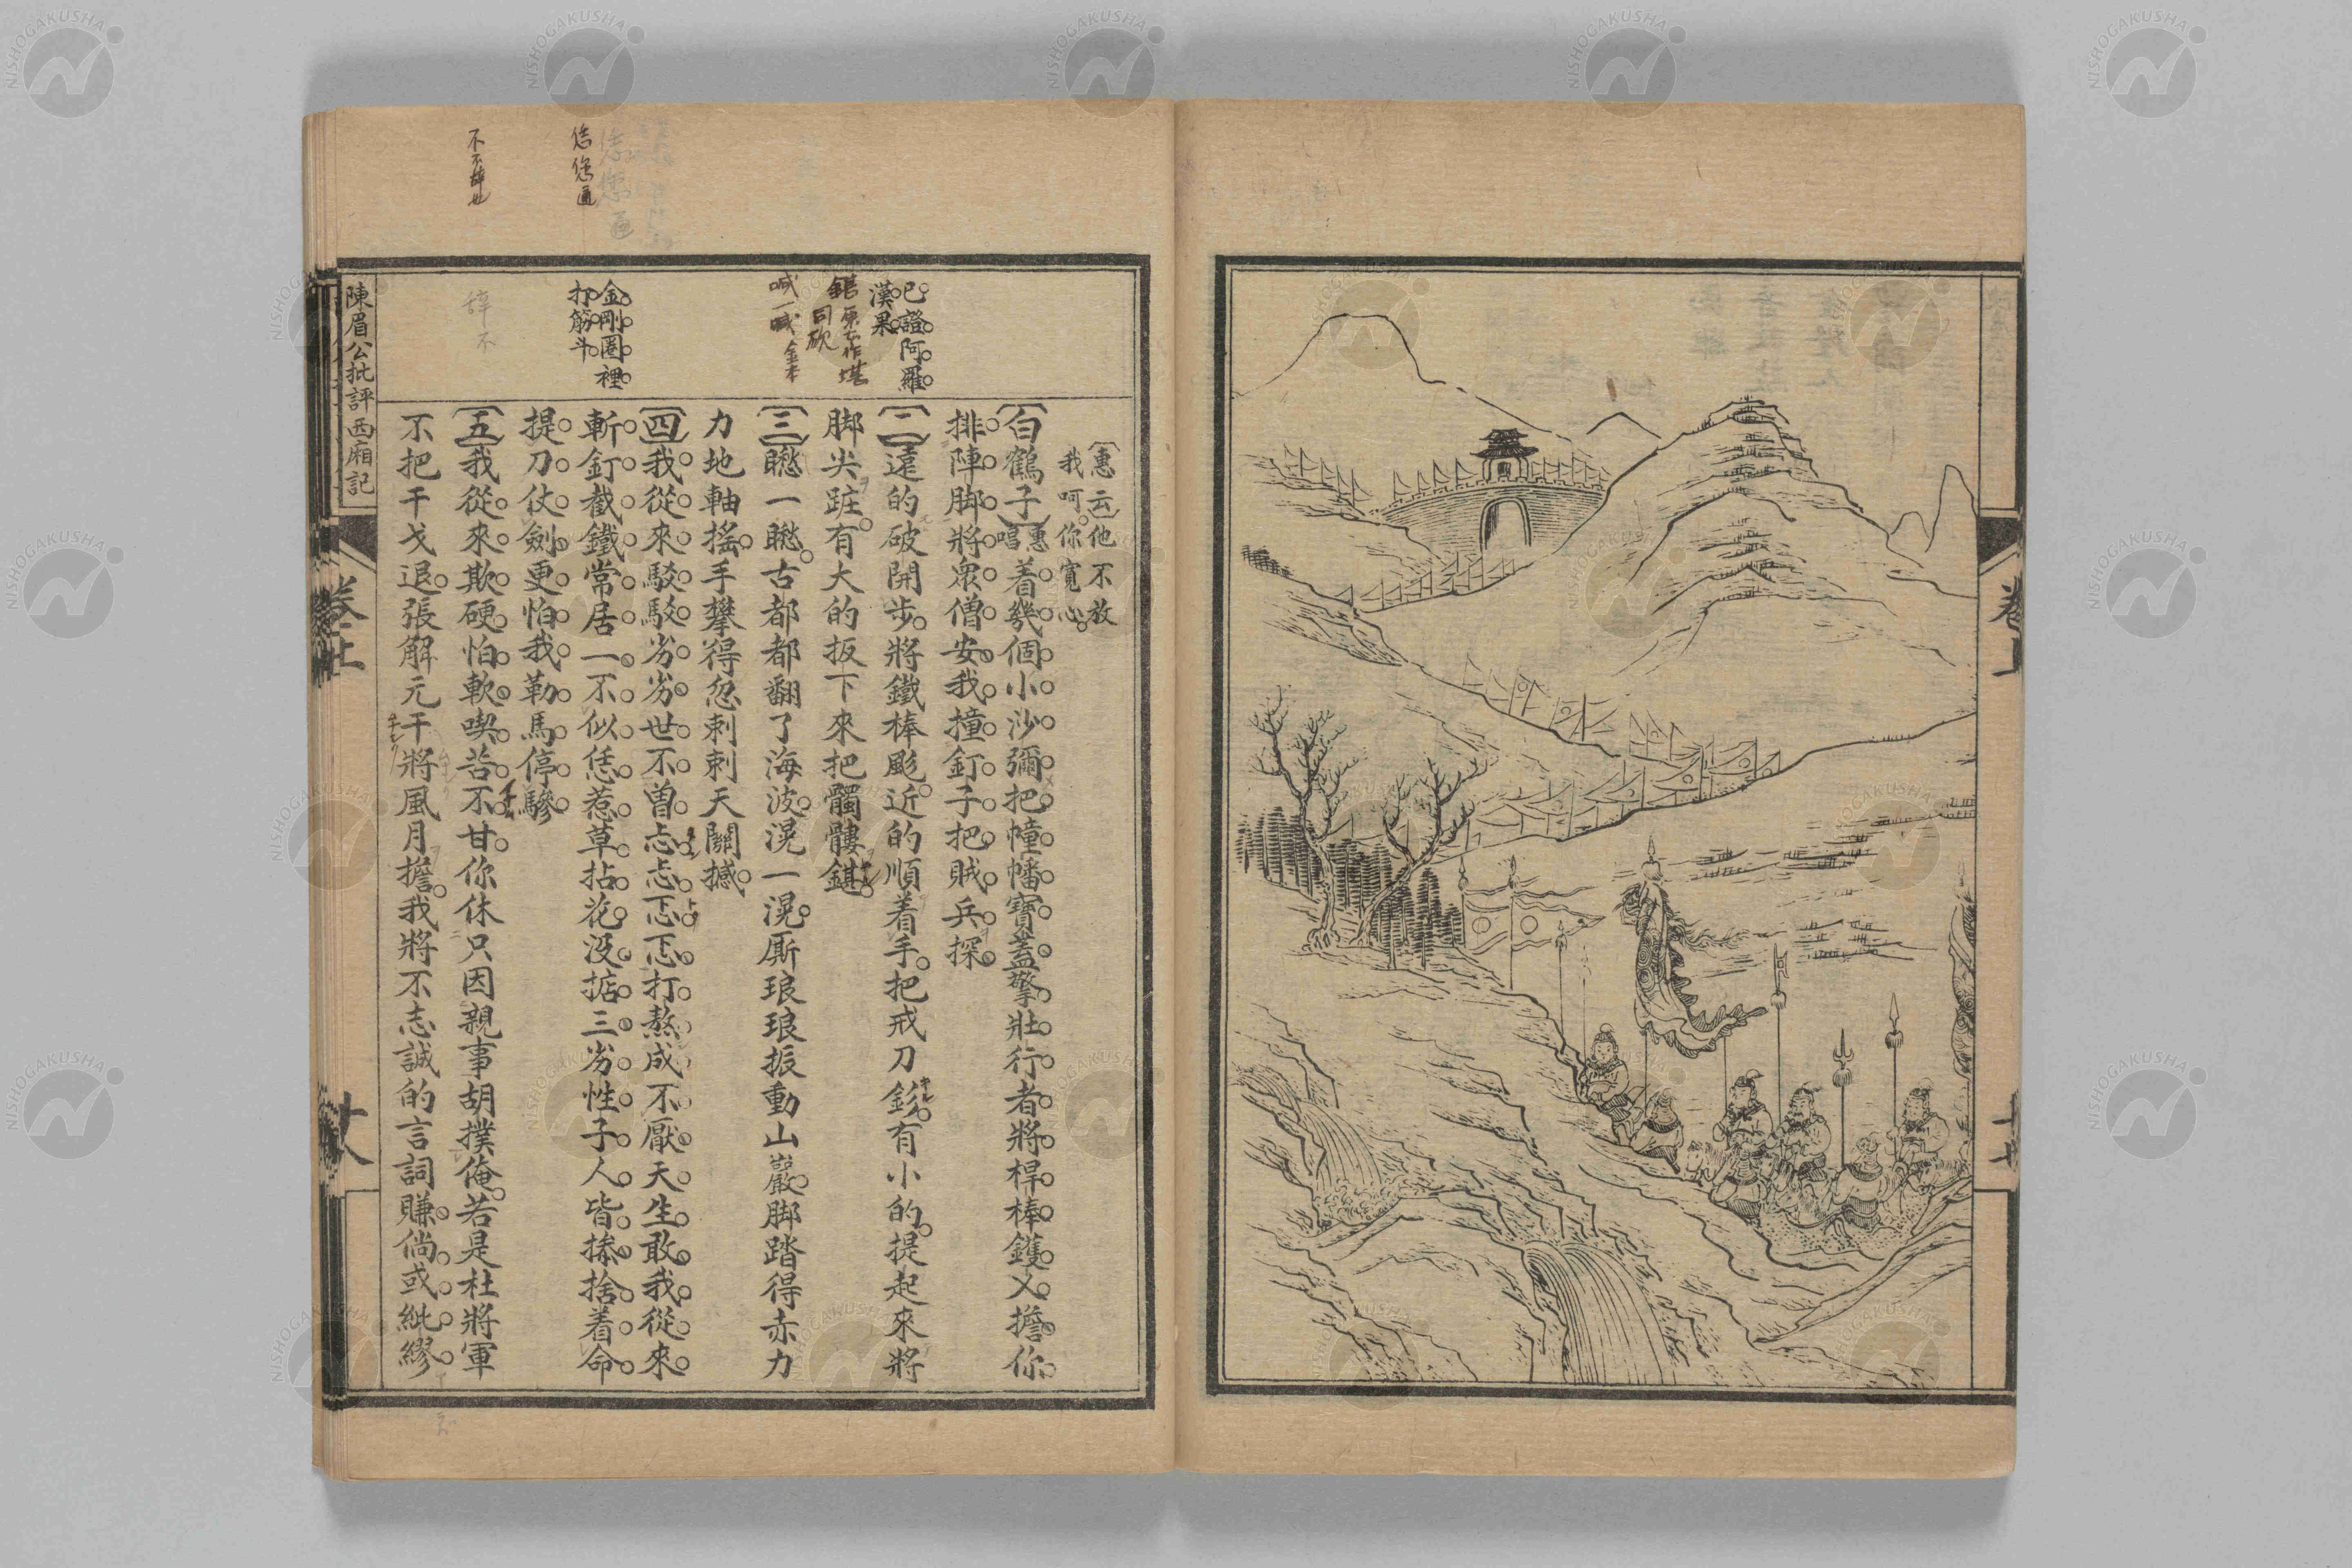 巳證阿羅
漢果
金剛圈裡
打筋斗
〔惠云〕他不放
我呵你寬心
〔白鶴子〕惠唱着幾個小沙彌把幢幡寶蓋擎壯行者將桿棒鑊叉擔你
排陣脚將衆僧安我撞釘子把賊兵探
〔二〕遠的破開步將鐵棒颩近的順着手把戒刀釤有小的提起來將
脚尖䟕有大的扳下來把髑髏鍖
〔三〕瞅一瞅古都都翻了海波滉一滉厮琅琅振動山巖脚踏得赤力
力地軸搖手攀得忽剌剌天關撼
〔四〕我從來駁駁劣劣世不曽忐忐忑忑打熬成不厭天生敢我從來
斬釘截鐵常居一不似恁惹草拈花没掂三劣性子人皆㨻捨着命
提刀仗劍更怕我勒馬停驂
〔五〕我從來欺硬怕軟喫苦不甘你休只因親事胡撲俺若是杜將軍
不把干戈退張解元干將風月擔我將不志誠的言詞賺倘或紕繆
陳眉公批評西廂記
卷上
卷上
NISHOGAKUSHA